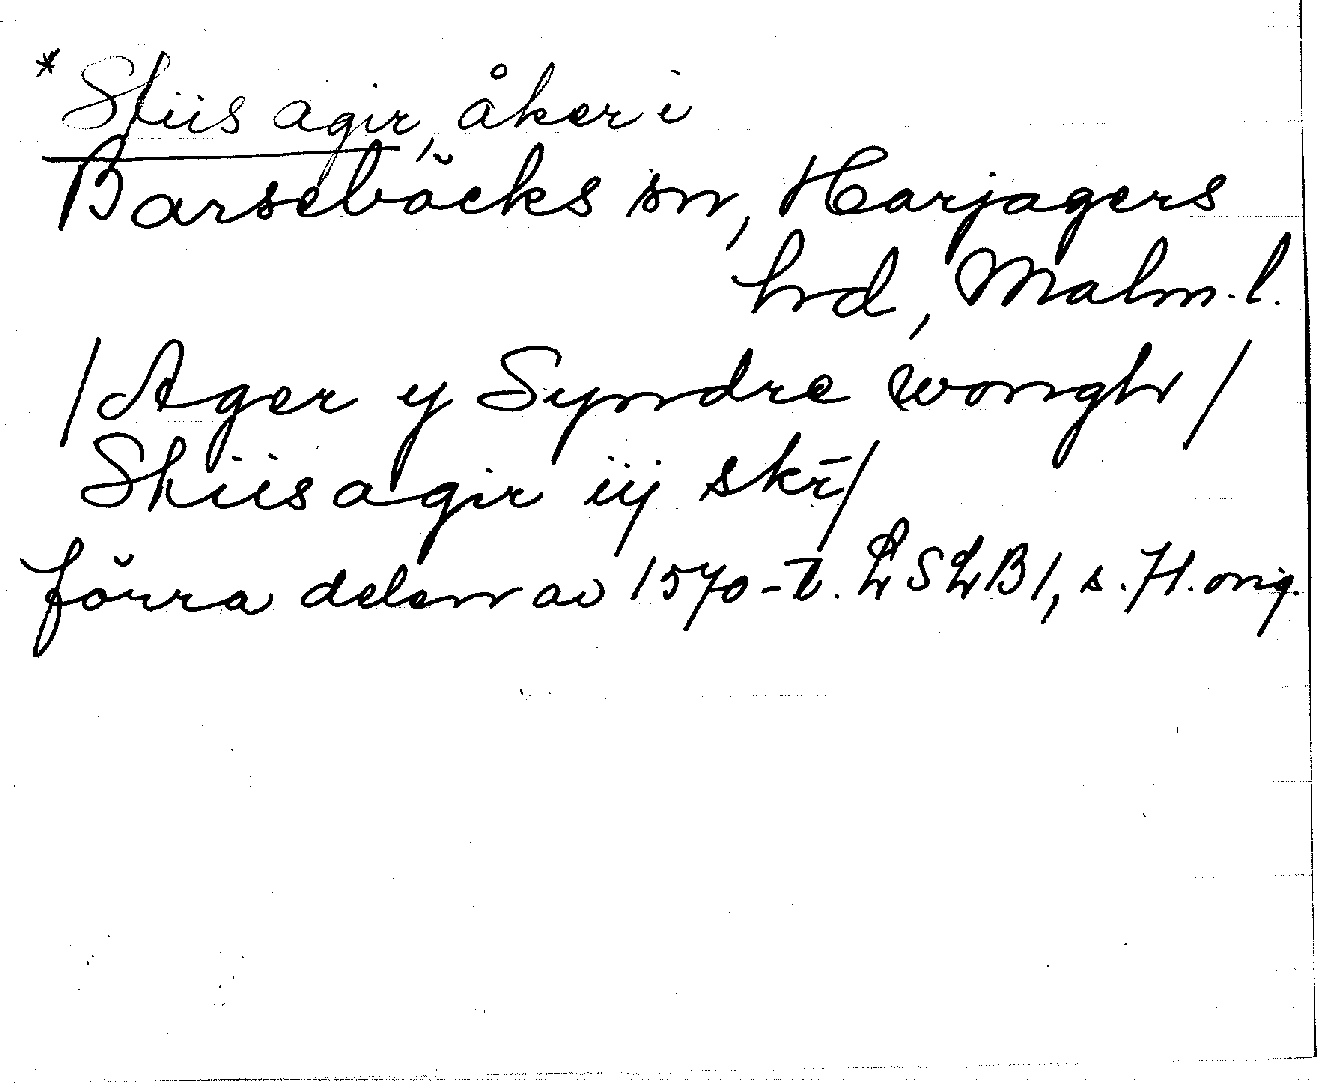 *Skiis agir, åker i
Barsebäcks sn, Harjagers
hrd, Malm. l.
/Ager y Syndre wongh/
Skiis agir iij skr̄/
förra delen av 1570-t. LSLB1, s. 71. orig.